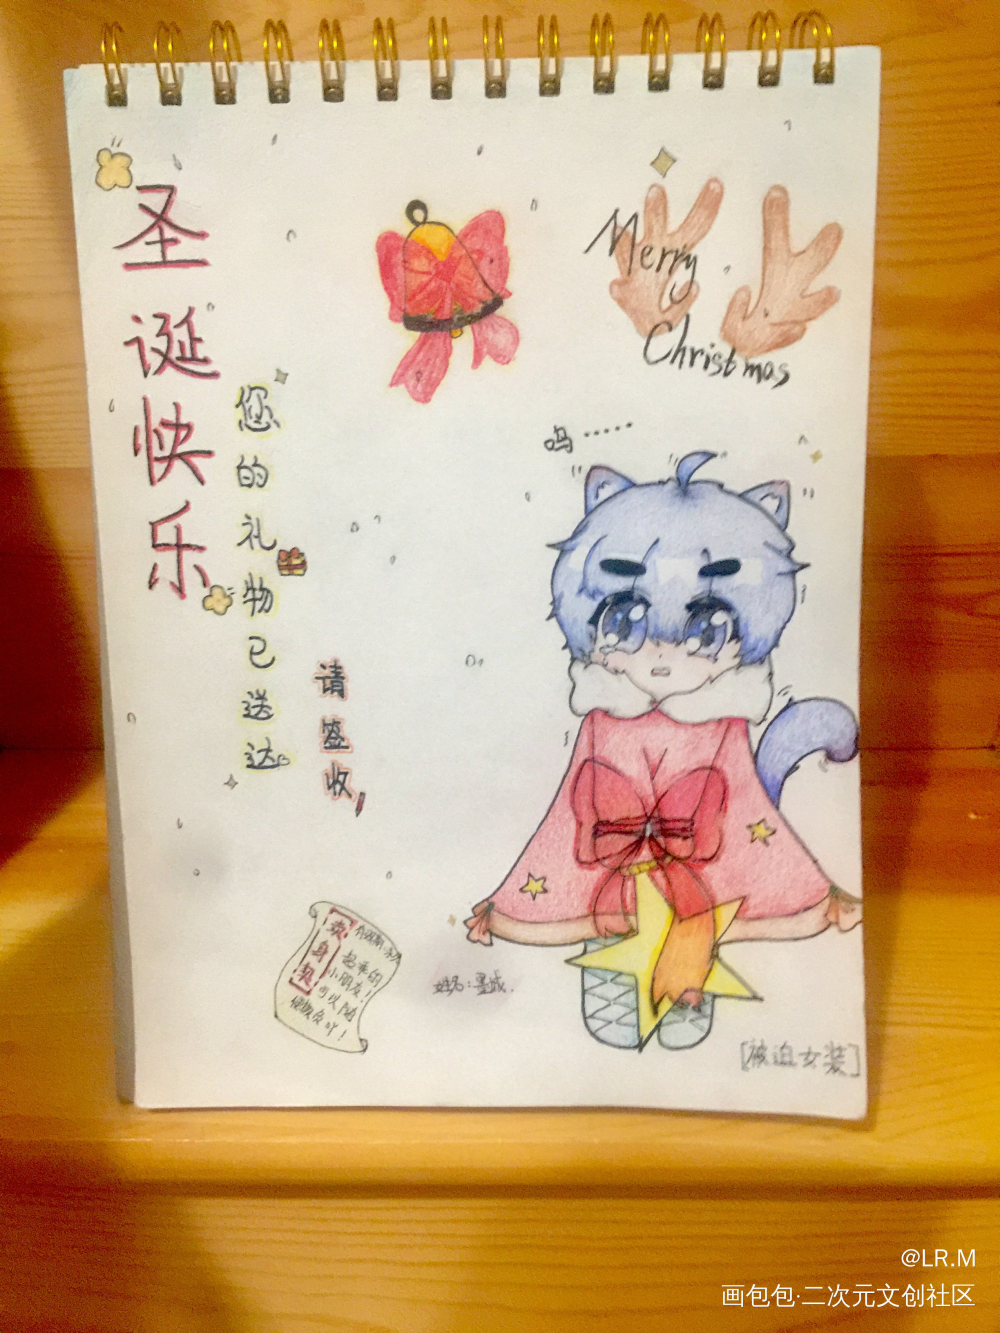 圣诞快乐
您的礼物已送达
请签收
Merry
Christmas
呜……
卖身契
起来的
小朋友！
可以随
便欺负吖！
姓名：墨
[被迫女装]
@LR.M
画包包·二次元文创社区